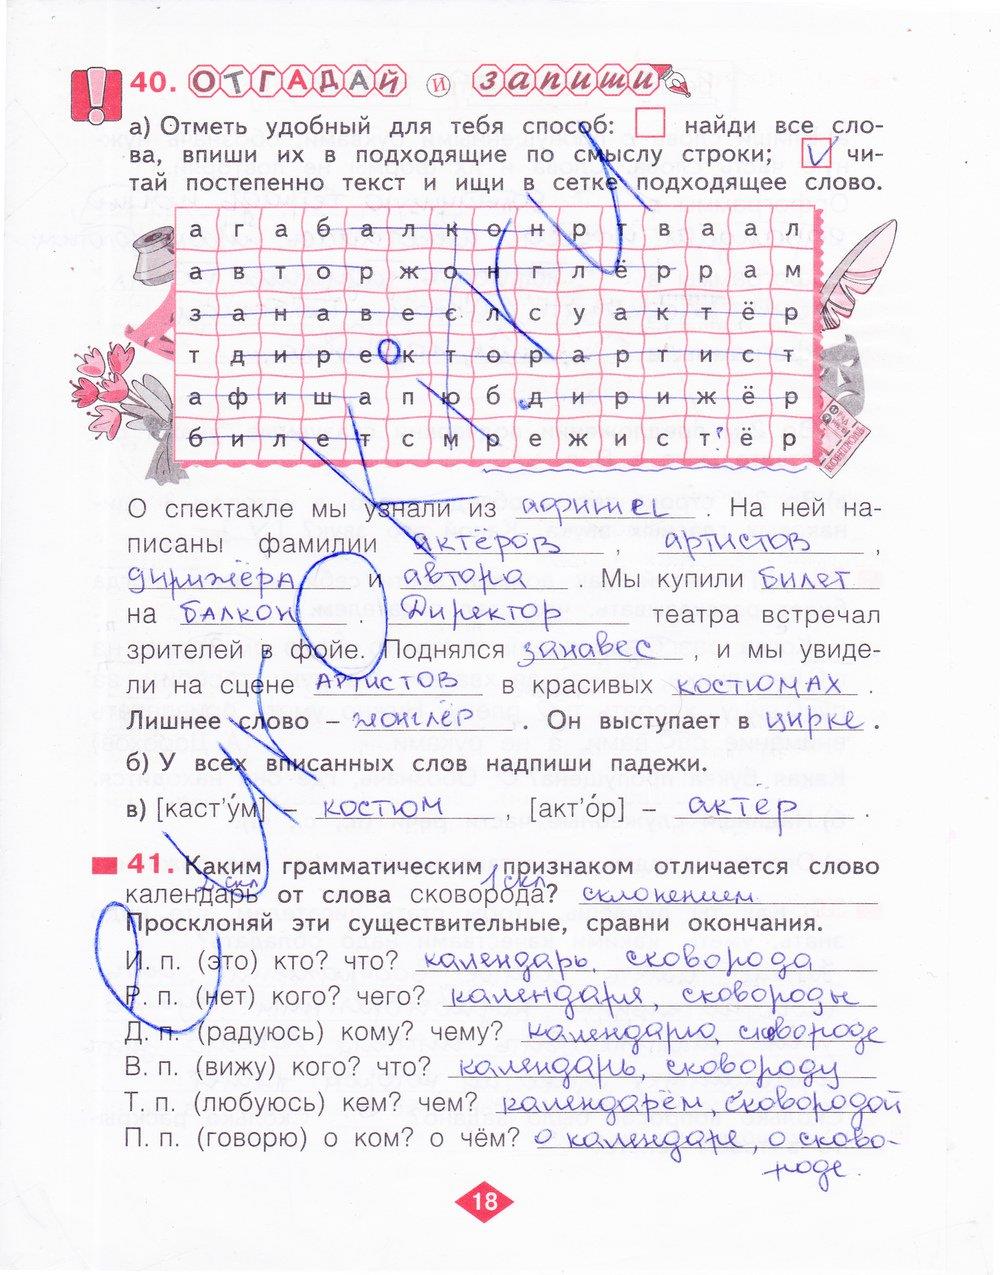 40. ОТГАДАЙ И ЗАПИШИ
а) Отметь удобный для тебя способ: найди все сло-
ва, впиши их в подходящие по смыслу строки; V чи-
тай постепенно текст и ищи в сетке подходящее слово.
а г а б а л к о н р т в а а л
а в т о р ж о н г л ё р р а м
з а н а в е с л с у а к т ё р
т д и р е к т о р а р т и с т
а ф и ш а п ю б д и р и ж ё р
б и л е т с м р е ж и с т ? ё р
О спектакле мы узнали из афиши . На ней на-
писаны фамилии актёров , артистов ,
дирижёра и автора . Мы купили билет
на балкон . Директор театра встречал
зрителей в фойе. Поднялся занавес , и мы увиде-
ли на сцене артистов в красивых костюмах .
Лишнее слово – жонглёр . Он выступает в цирке .
б) У всех вписанных слов надпиши падежи.
в) [каст'у́м] – костюм , [акт'о́р] – актер .
41. Каким грамматическим признаком отличается слово
2 скл 1 скл
календарь от слова сковорода? склонением.
Просклоняй эти существительные, сравни окончания.
И. п. (это) кто? что? календарь, сковорода
Р. п. (нет) кого? чего? календаря, сковороды
Д. п. (радуюсь) кому? чему? календарю, сковороде
В. п. (вижу) кого? что? календарь, сковороду
Т. п. (любуюсь) кем? чем? календарём, сковородой
П. п. (говорю) о ком? о чём? о календаре, о сково-
роде.
18